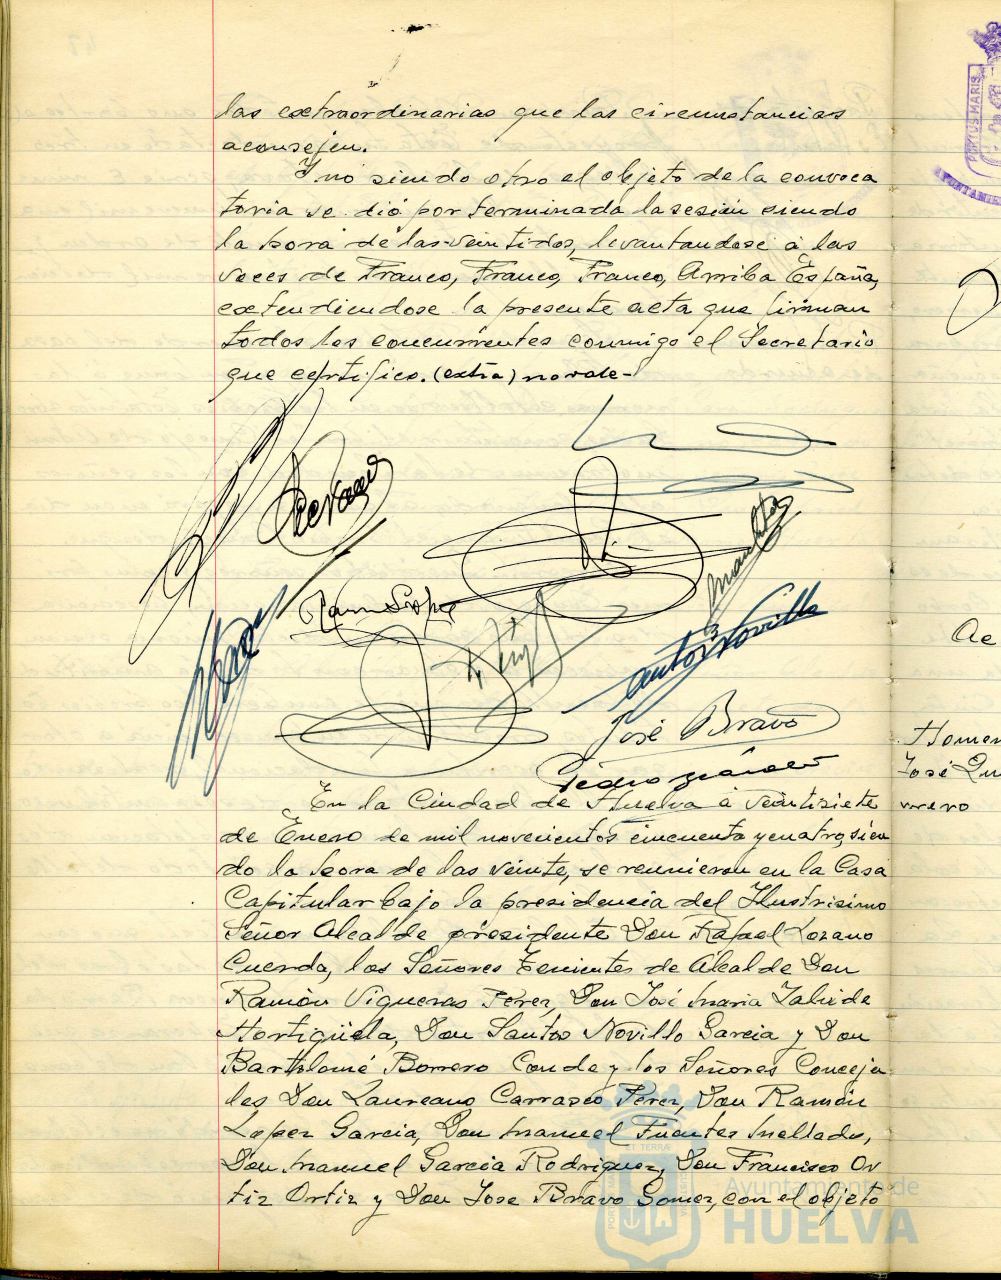 las extraordinarias que las circunstancias
aconsejen.
Y no siendo otro el objeto de la convoca
toria se dió por terminada la sesión siendo
la hora de las veintidos, levantandose á las
voces de Franco, Franco, Franco, Arriba España,
extendiendose la presente acta que firman
todos los concurrentes conmigo el Secretario
que certifico. (extra) no vale-
Ramon Lopez
José Bravo
En la Ciudad de Huelva á veintisiete
de Enero de mil novecientos cincuenta y cuatro, sien
do la hora de las veinte, se reunieron en la Casa
Capitular bajo la presidencia del Ilustrisimo
Señor Alcalde presidente Don Rafael Lozano
Cuerda, los Señores Tenientes de Alcalde Don
Ramón Vigueras Pérez, Don José Maria
Hortigüela, Don Santos Novillo Garcia y Don
Bartolomé Borrero Conde y los Señores Conceja
les Don Laureano Carrasco Perez, Don Ramón
Lopez Garcia, Don Manuel Fuentes Mellado,
Don Manuel Garcia Rodriguez, Don Francisco Or
tiz Ortiz y Don Jose Bravo Gomez, con el objeto
PORTUS MARIS
Ac
Homen
José
Ayuntamiento de
HUELVA